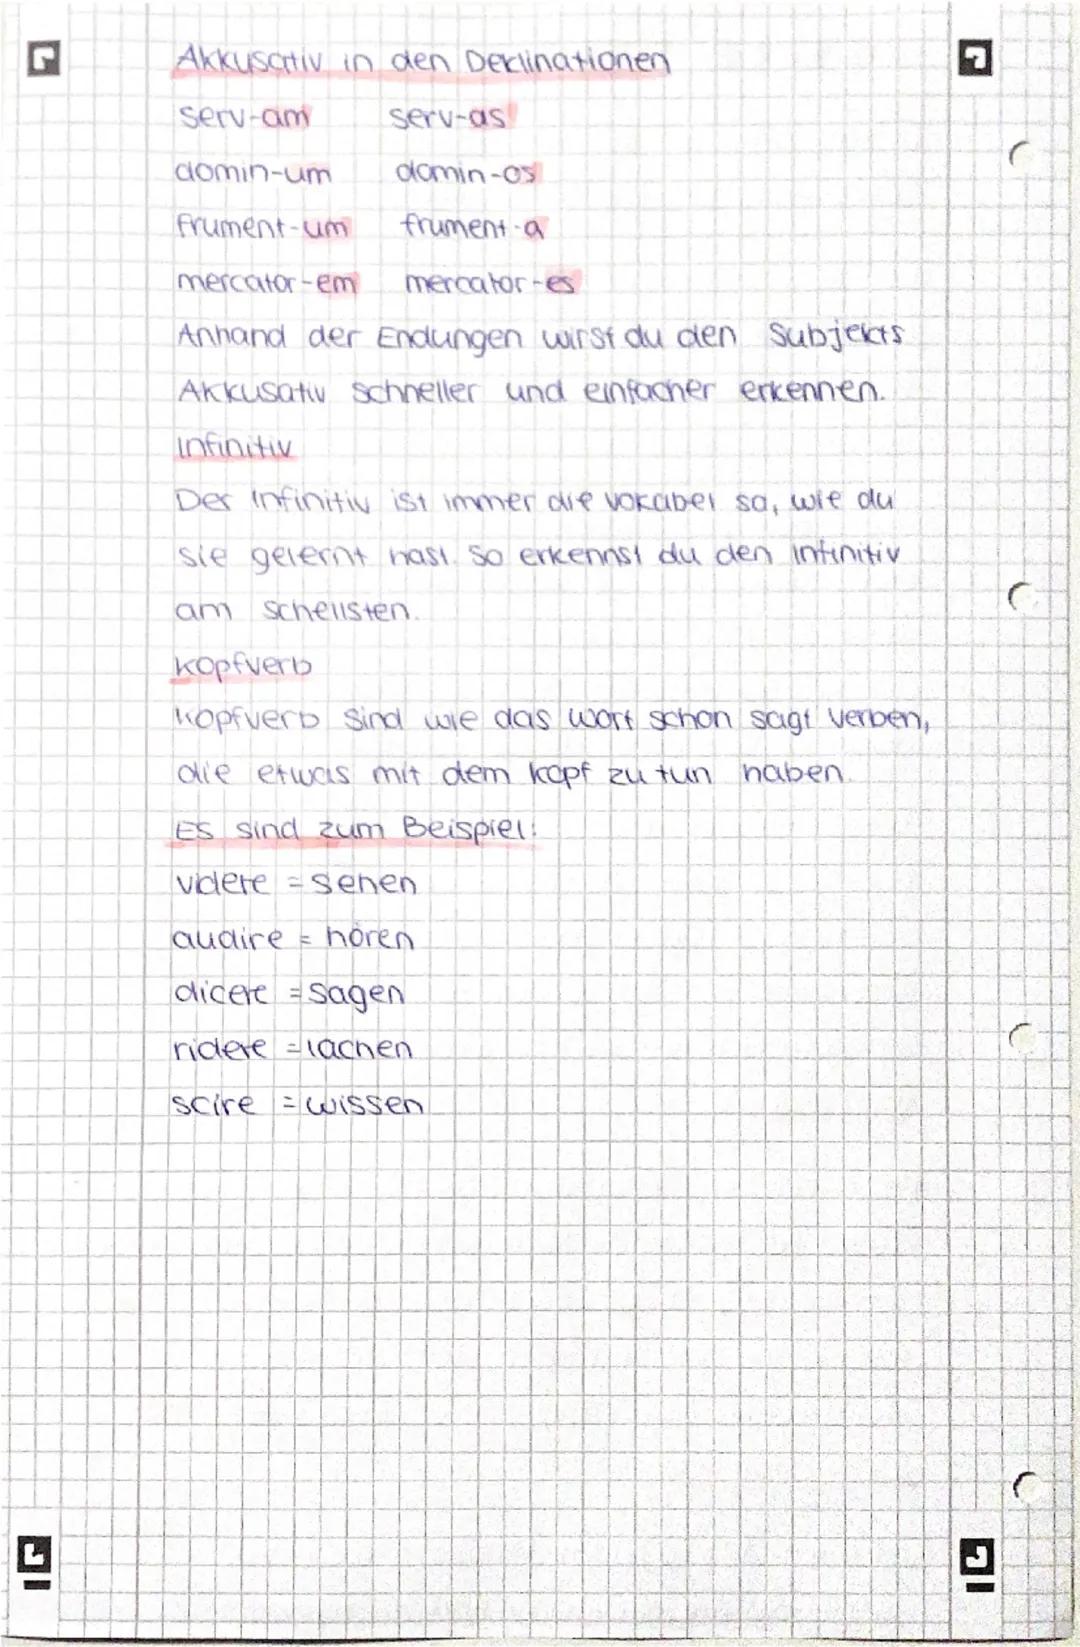 Akkusativ in den Deklinationen
serv-am serv-as
domin-um domin-os
frument-um frument-a
mercator-em mercator-es
Anhand der Endungen wirst du den Subjekts
Akkusativ schneller und einfacher erkennen.
Infinitiv
Der Infinitiv ist immer die vokabel so, wie du
sie gelernt hast. So erkennst du den infinitiv
am schellsten.
Kopfverb
Kopfverb sind wie das wort schon sagt verben,
die etwas mit dem kopf zu tun haben.
Es sind zum Beispiel:
videre = sehen
audire = hören
dicere = sagen
ridere = lachen
scire = wissen